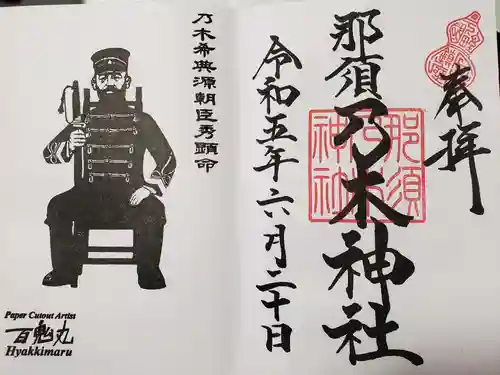 奉拝
那須乃木神社
那須乃木神社
令和五年六月二十日
乃木希典源朝臣秀顕命
Paper Cutout Artist
百鬼丸
Hyakkimaru